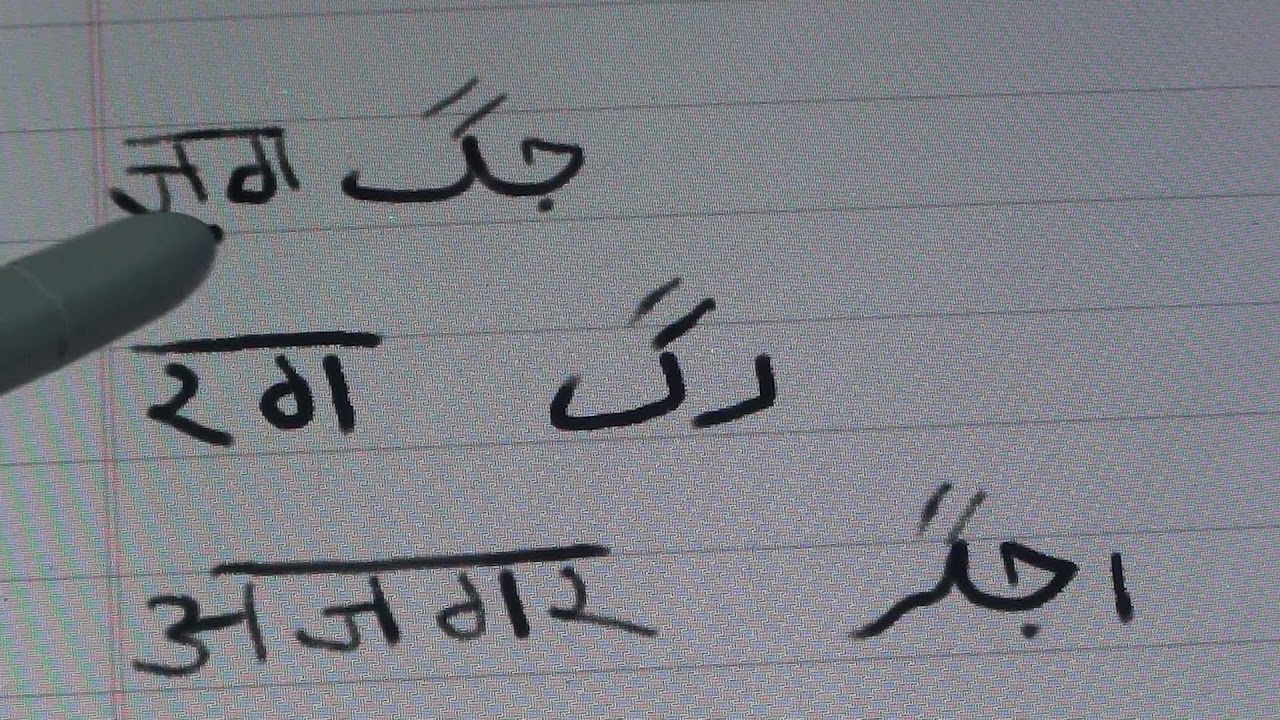 जग جگ
रग رگ
अजगर اجگر